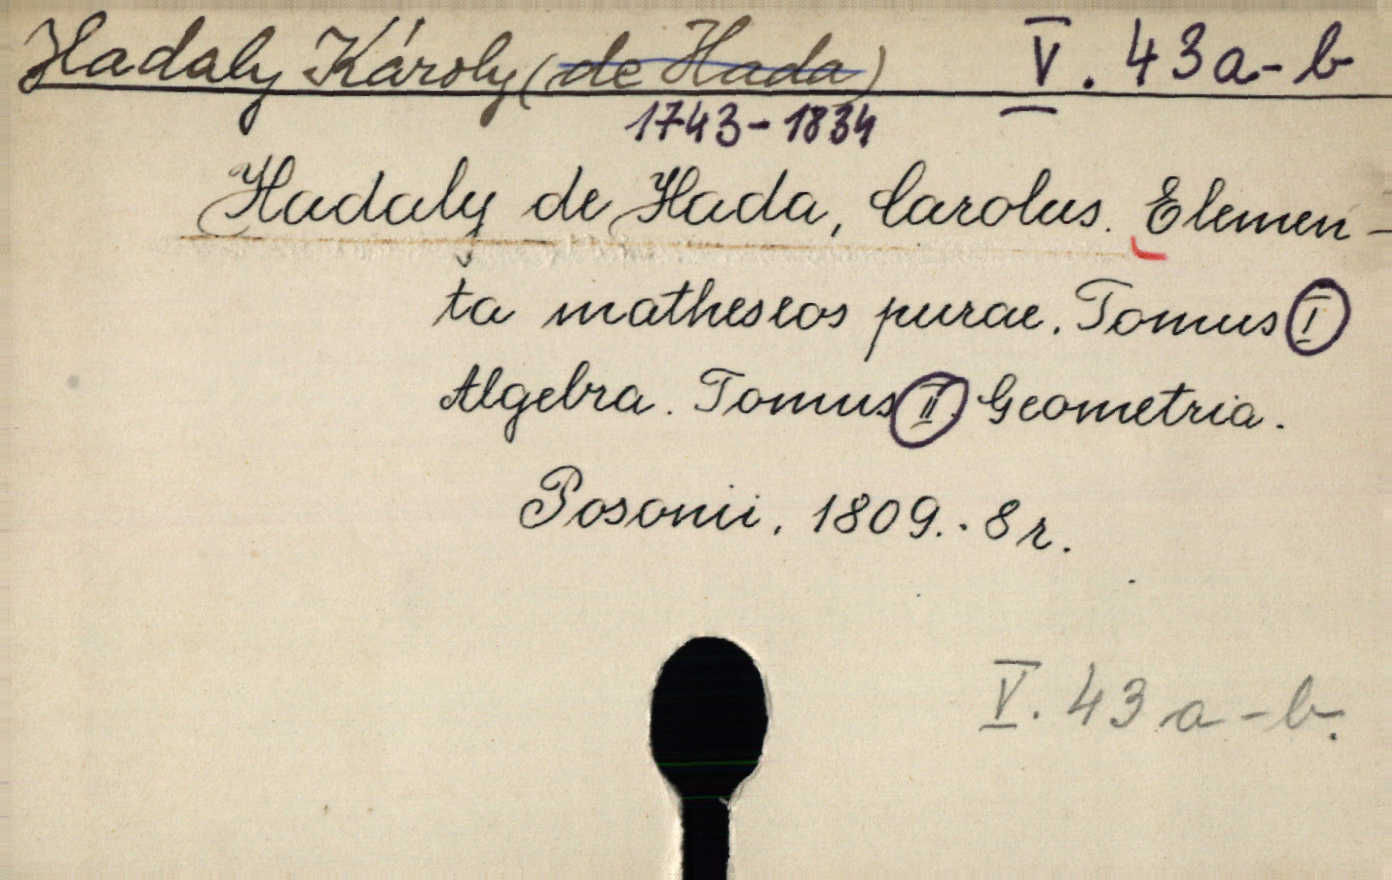 Hadaly Károly (de Hada) V. 43a-b
1743-1834
Hadaly de Hada, Carolus. Elemen-
ta matheseos purae. Tomus I
Algebra. Tomus II. Geometria.
Posonii, 1809.. 8r.
V. 43 a-b.